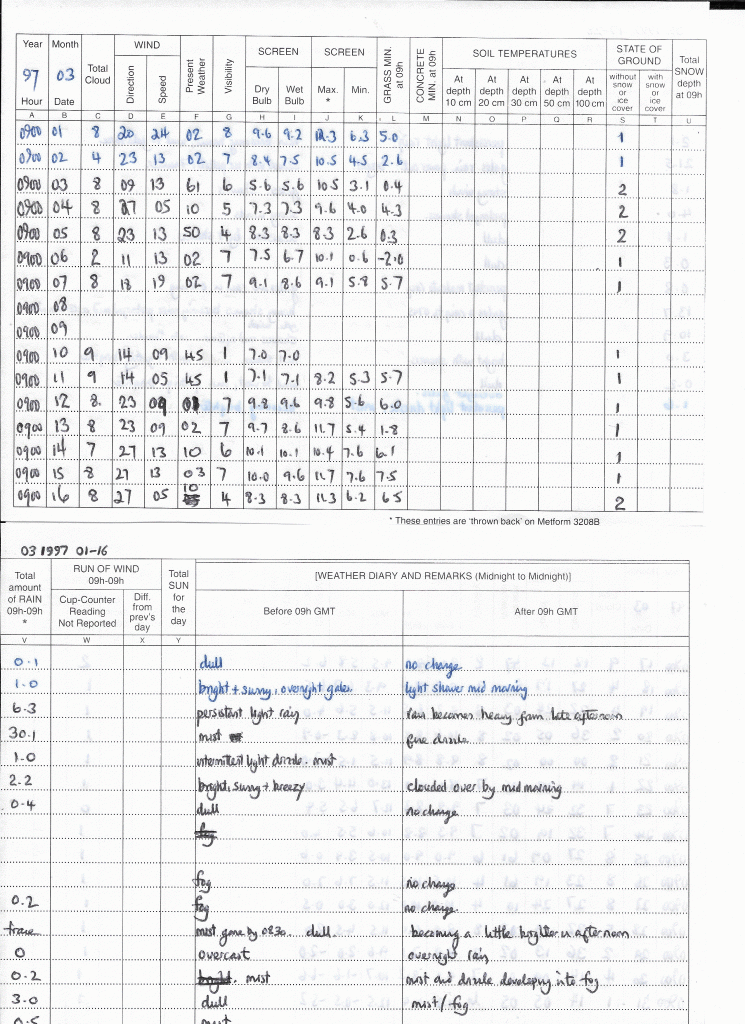 Year Month Total Cloud WIND Present Weather Visibility SCREEN SCREEN GRASS MIN. at 09h CONCRETE MIN. at 09h SOIL TEMPERATURES STATE OF GROUND Total SNOW depth at 09h
97 03 Direction Speed Dry Bulb Wet Bulb Max. * Min. At depth 10 cm At depth 20 cm At depth 30 cm At depth 50 cm At depth 100 cm without snow or ice cover with snow or ice cover
Hour Date
A B C D E F G H I J K L M N O P Q R S T U
0900 01 8 20 24 02 8 9.6 9.2 12.3 6.3 5.0 1
0900 02 4 23 13 02 7 8.4 7.5 10.5 4.5 2.6 1
0900 03 8 09 13 61 6 5.6 5.6 10.5 3.1 0.4 2
0900 04 8 27 05 10 5 7.3 7.3 9.6 4.0 4.3 2
0900 05 8 23 13 50 4 8.3 8.3 8.3 2.6 0.3 2
0900 06 2 11 13 02 7 7.5 6.7 10.1 0.6 -2.0 1
0900 07 8 18 19 02 7 9.1 8.6 9.1 5.8 5.7 1
0900 08
0900 09
0900 10 9 14 09 45 1 7.0 7.0 1
0900 11 9 14 05 45 1 7.1 7.1 8.2 5.3 5.7 1
0900 12 8. 23 09 7 9.8 9.6 9.8 5.6 6.0 1
0900 13 8 23 09 02 7 9.7 8.6 11.7 5.4 1.8 1
0900 14 7 27 13 10 6 10.1 10.1 10.4 7.6 6.1 1
0900 15 8 27 13 03 7 10.0 9.6 11.7 7.6 7.5 1
0900 16 8 27 05 10 4 8.3 8.3 11.3 6.2 6.5 2
* These entries are 'thrown back' on Metform 3208B
03 1997 01-16
Total amount of RAIN 09h-09h * RUN OF WIND 09h-09h Total SUN for the day [WEATHER DIARY AND REMARKS (Midnight to Midnight)]
Cup-Counter Reading Not Reported Diff. from prev's day Before 09h GMT After 09h GMT
V W X Y
0.1 dull no change
1.0 bright + sunny, overnight gales light shower mid morning
6.3 persistent light rain rain becomes heavy from late afternoon
30.1 mist fine drizzle.
1.0 intermittent light drizzle. mist
2.2 bright, sunny + breezy clouded over by mid morning
0.4 dull no change
fog
fog no change
0.2 fog no change
trace mist gone by 0830. dull. becoming a little brighter in afternoon
0 overcast overnight rain
0.2 bright. mist mist and drizzle developing into fog
3.0 dull mist / fog
0.5 mist